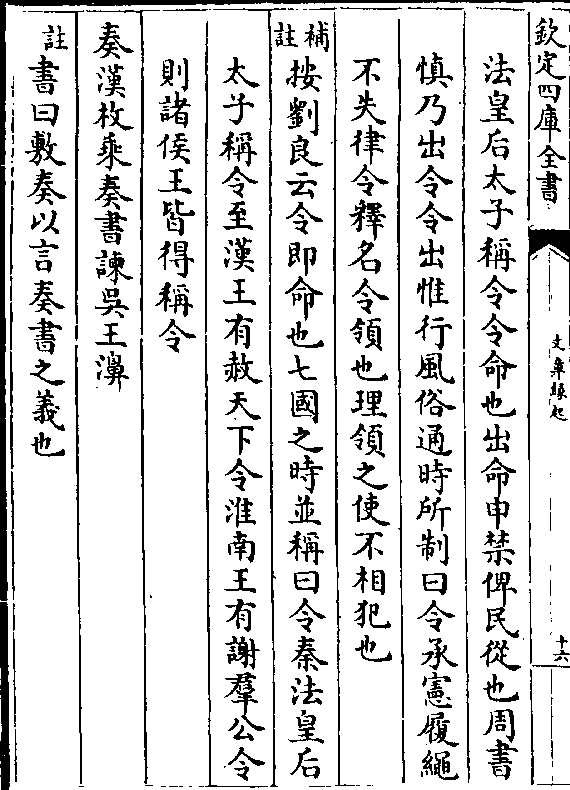 欽定四庫全書
文章緣起
十六
法皇后太子稱令令命也出命申禁俾民從也周書
慎乃出令令出惟行風俗通時所制曰令承憲履繩
不失律令釋名令領也理領之使不相犯也
補註按劉良云令即命也七國之時並稱曰令秦法皇后
太子稱令至漢王有赦天下令淮南王有謝羣公令
則諸侯王皆得稱令
奏漢枚乘奏書諫吳王濞
註書曰敷奏以言奏書之義也